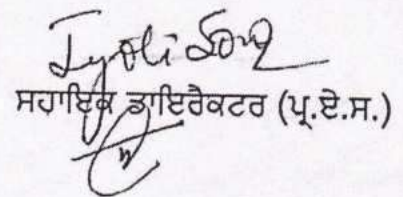 Jyoti
ਸਹਾਇਕ ਡਾਇਰੈਕਟਰ (ਪ੍ਰ.ਏ.ਸ.)